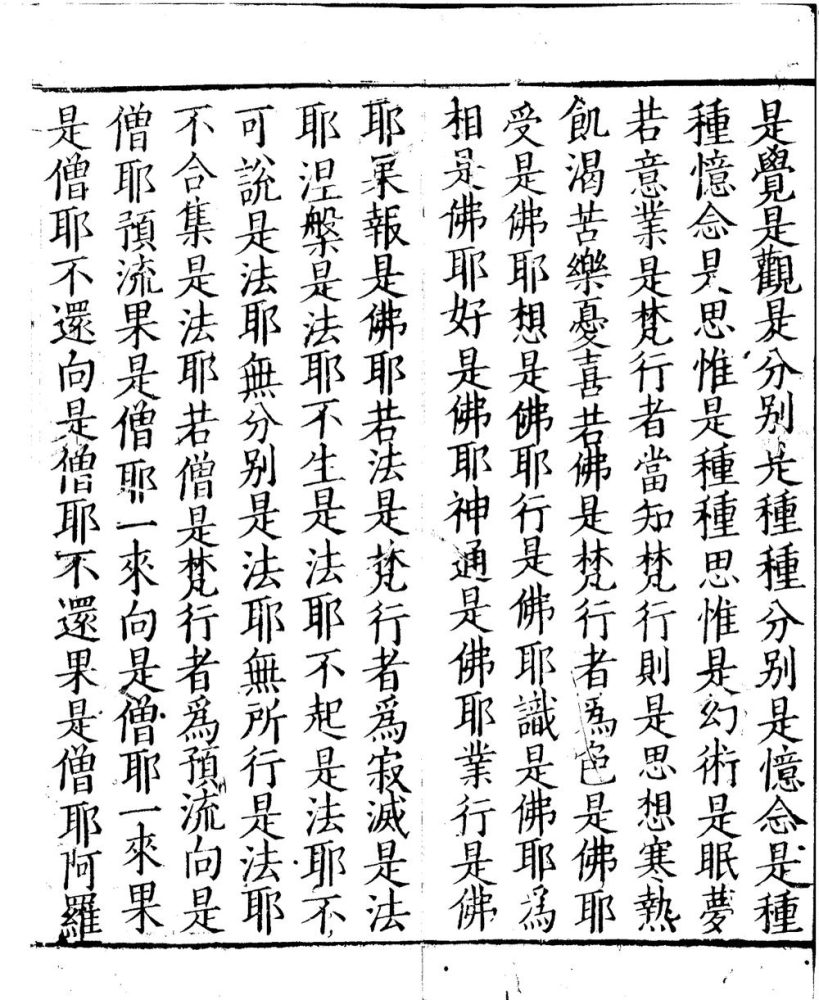 是覺是觀是分别是種種分别是憶念是種
種憶念是思惟是種種思惟是幻術是眠夢
若意業是梵行者當知梵行則是思想寒熱
飢渴苦樂憂喜若佛是梵行者爲色是佛耶
受是佛耶想是佛耶行是佛耶識是佛耶爲
相是佛耶好是佛耶神通是佛耶業行是佛
耶果報是佛耶若法是梵行者爲寂滅是法
耶涅槃是法耶不生是法耶不起是法耶不
可說是法耶無分别是法耶無所行是法耶
不合集是法耶若僧是梵行者爲預流向是
僧耶預流果是僧耶一來向是僧耶一來果
是僧耶不還向是僧耶不還果是僧耶阿羅